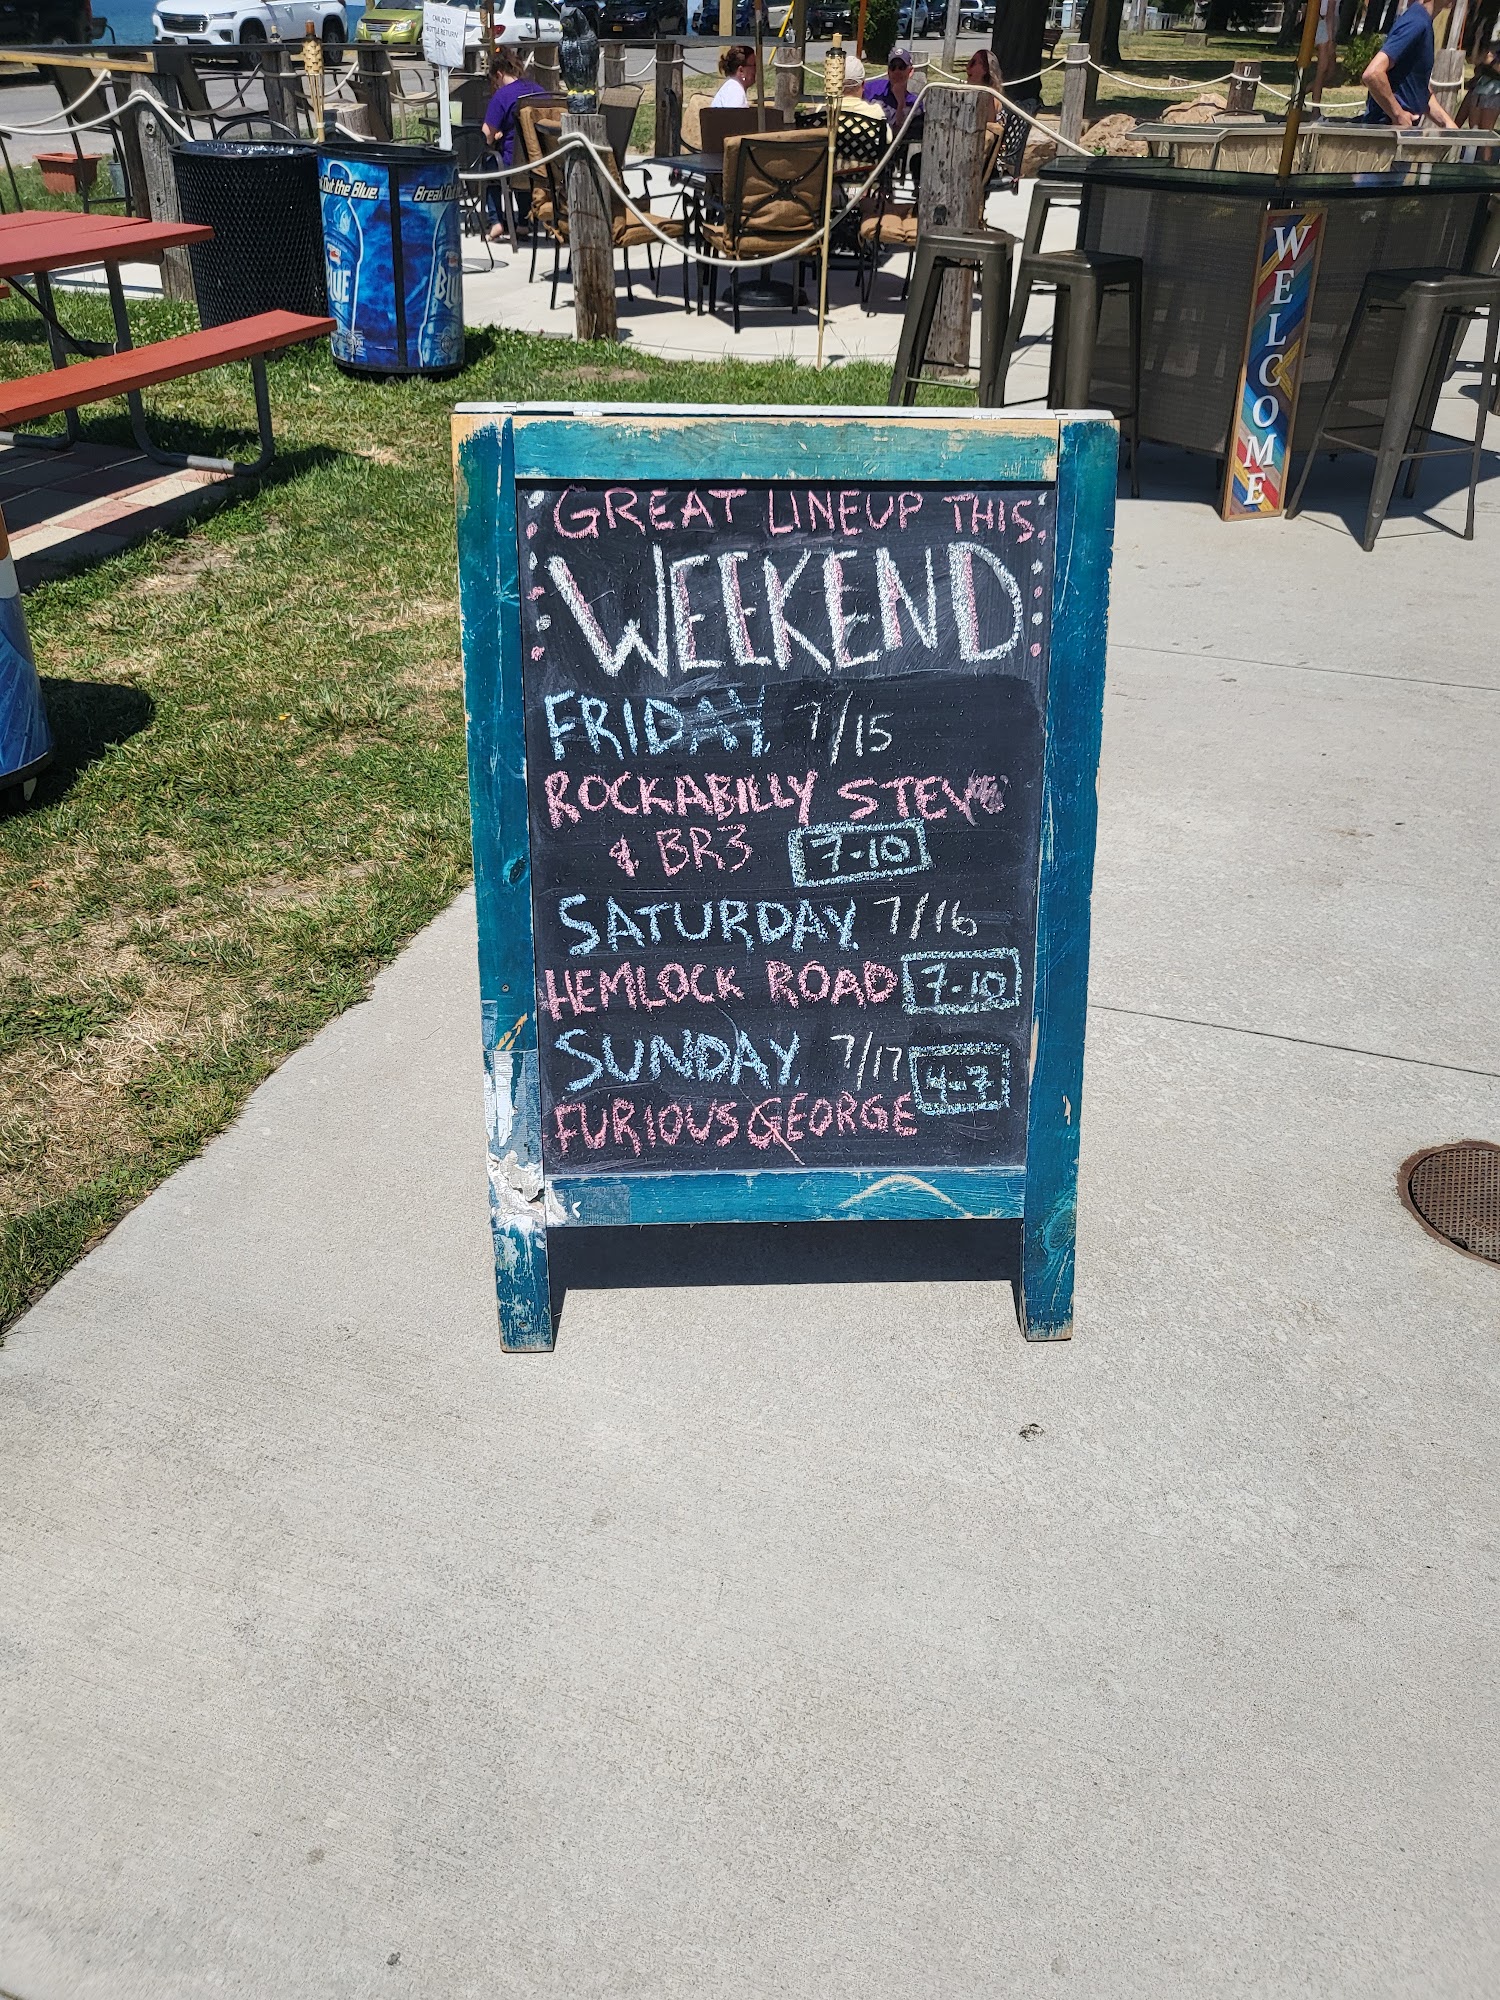 CAN AND
BOTTLE RETURN
Out the Blue.
Break Out
BLUE
WELCOME
GREAT LINEUP THIS
WEEKEND
FRIDAY 7/15
ROCKABILLY STEV
& BR3 7-10
SATURDAY 7/16
HEMLOCK ROAD 7-10
SUNDAY 7/17 4-7
FURIOUS GEORGE